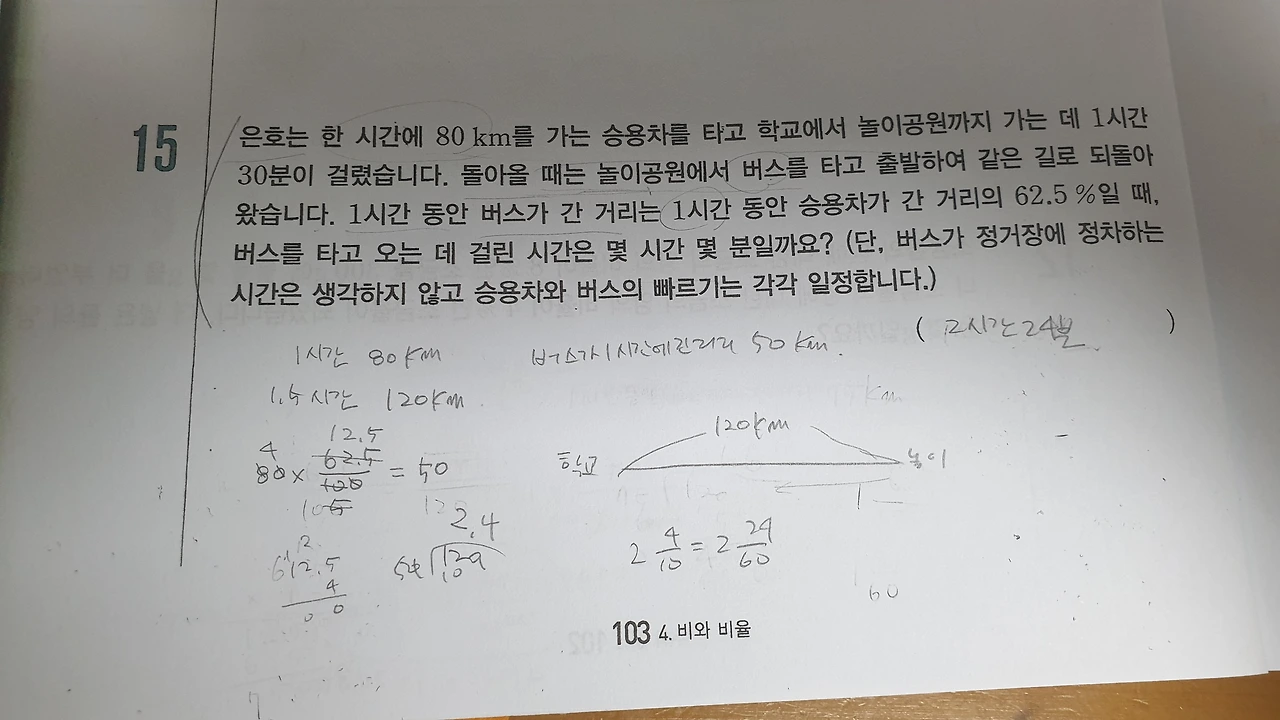 15
은호는 한 시간에 80 km를 가는 승용차를 타고 학교에서 놀이공원까지 가는 데 1시간
30분이 걸렸습니다. 돌아올 때는 놀이공원에서 버스를 타고 출발하여 같은 길로 되돌아
왔습니다. 1시간 동안 버스가 간 거리는 1시간 동안 승용차가 간 거리의 62.5 %일 때,
버스를 타고 오는 데 걸린 시간은 몇 시간 몇 분일까요? (단, 버스가 정거장에 정차하는
시간은 생각하지 않고 승용차와 버스의 빠르기는 각각 일정합니다.)
( 2시간 24분 )
1시간 80km
버스가 1시간에 간 거리 50km.
1.5시간 120km
120km
학교
놀이
12.5
4
80 × 62.5/100 = 50
10
2.4
2 4/10 = 2 24/60
62.5
4
60
103 4. 비와 비율